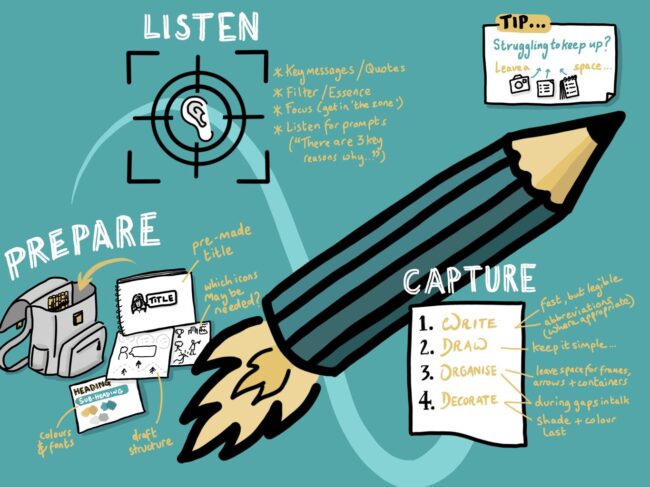 LISTEN
* Key messages / Quotes
* Filter / Essence
* Focus (get in 'the zone')
* Listen for prompts
("There are 3 key
reasons why...")
TIP...
Struggling to keep up?
Leave a
space...
PREPARE
pre-made
title
TITLE
which icons
may be
needed?
HEADING
SUB-HEADING
colours
& fonts
draft
structure
CAPTURE
1. WRITE
Fast, but legible
abbreviations
(where appropriate)
2. DRAW
keep it simple...
3. ORGANISE
leave space for frames,
arrows + containers
4. DECORATE
during gaps in talk
shade + colour
last